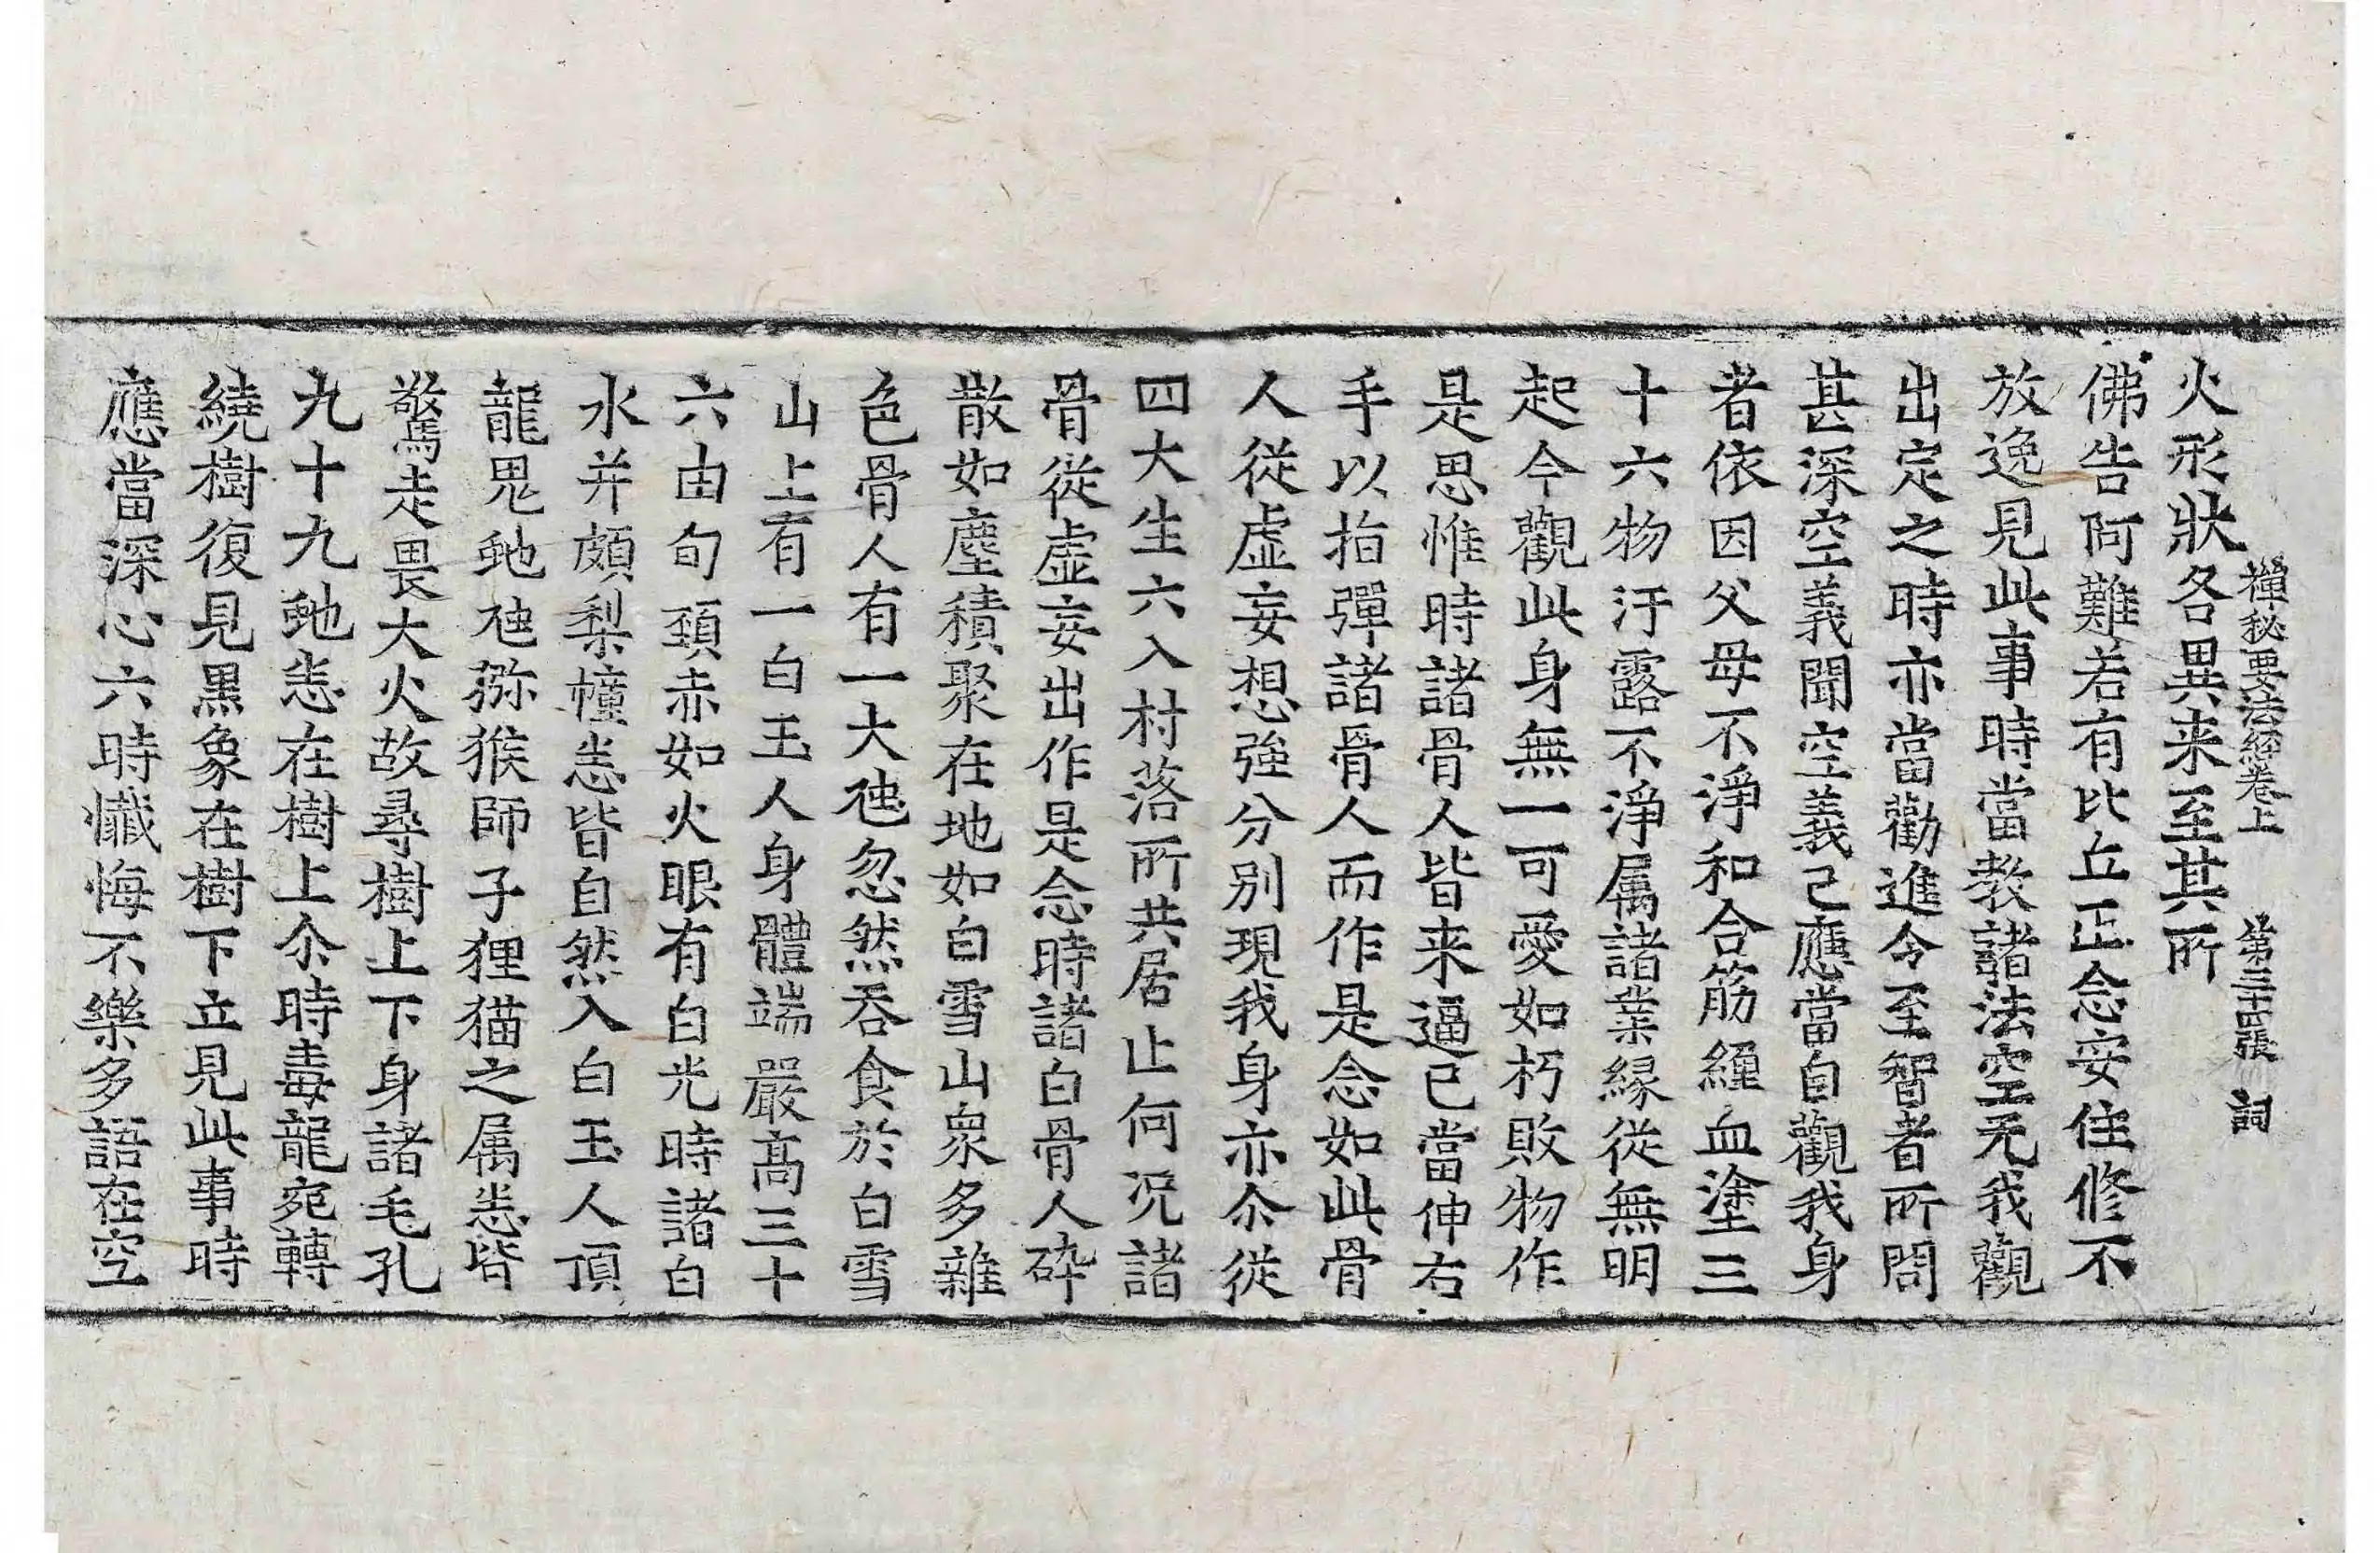 禪秘要法經卷上　第三十四張　詞
火形狀各異来至其所
佛告阿難若有比丘正念安住修不
放逸見此事時當教諸法空无我觀
出定之時亦當勸進令至智者所問
甚深空義聞空義已應當自觀我身
者依因父母不淨和合筋纏血塗三
十六物汙露不淨属諸業縁從無明
起今觀此身無一可愛如朽敗物作
是思惟時諸骨人皆来逼已當伸右
手以指彈諸骨人而作是念如此骨
人從虛妄想強分別現我身亦尒從
四大生六入村落所共居止何况諸
骨從虛妄出作是念時諸白骨人碎
散如塵積聚在地如白雪山衆多雜
色骨人有一大虵忽然吞食於白雪
山上有一白玉人身體端嚴髙三十
六由旬頚赤如火眼有白光時諸白
水并頗梨幢悉皆自然入白玉人頂
龍鬼虵虵猕猴師子狸猫之属悉皆
驚走畏大火故尋樹上下身諸毛孔
九十九虵悉在樹上尒時毒龍宛轉
繞樹復見黒象在樹下立見此事時
應當深心六時懺悔不樂多語在空